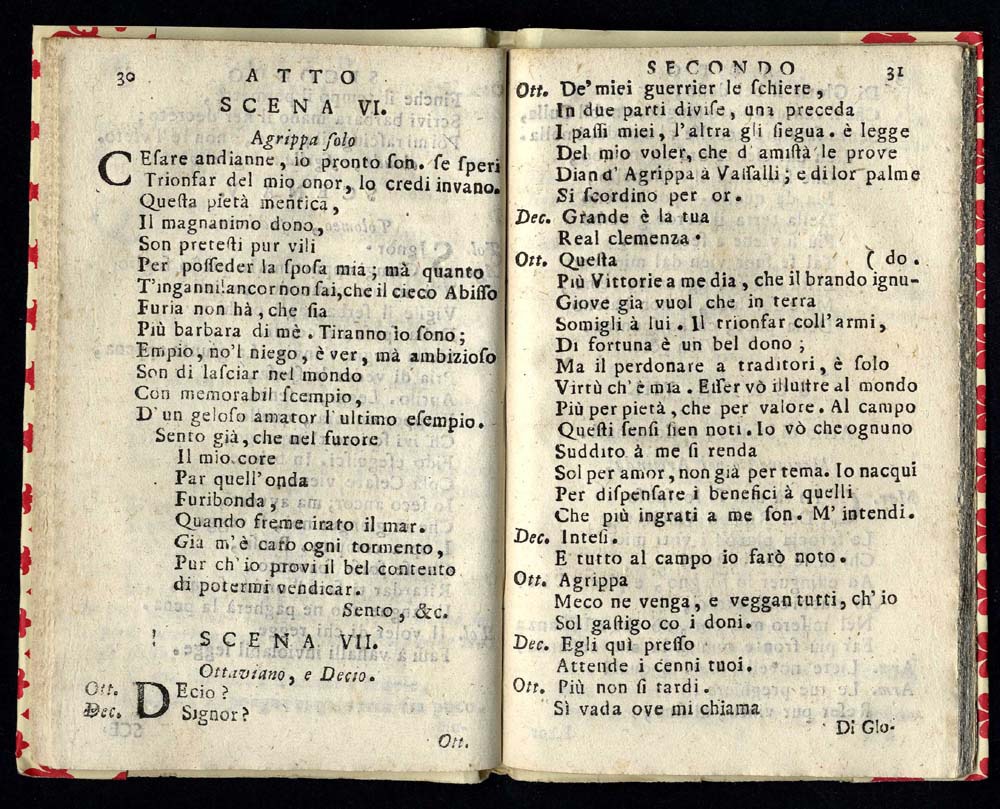 30 ATTO
SCENA VI.
Agrippa ſolo
CEſare andianne, io pronto ſon. ſe ſperi
Trionfar del mio onor, lo credi invano.
Queſta pietà mentica,
Il magnanimo dono,
Son preteſti pur vili
Per poſſeder la ſpoſa mia; mà quanto
T'inganni! ancor non ſai, che il cieco Abiſſo
Furia non hà, che ſia
Più barbara di mè. Tiranno io ſono;
Empio, no'l niego, è ver, mà ambizioſo
Son di laſciar nel mondo
Con memorabil ſcempio,
D'un geloſo amator l'ultimo eſempio.
Sento già, che nel furore
Il mio core
Par quell'onda
Furibonda,
Quando freme irato il mar.
Gia m'è caro ogni tormento,
Pur ch'io provi il bel contento
di potermi vendicar.
Sento, &c.
SCENA VII.
Ottaviano, e Decio.
Ott. DEcio?
Dec. Signor?
Ott.
SECONDO 31
Ott. De' miei guerrier le ſchiere,
In due parti diviſe, una preceda
I paſſi miei, l'altra gli ſiegua. è legge
Del mio voler, che d'amiſtà le prove
Dian d'Agrippa à Vaſſalli; e di lor palme
Si ſcordino per or.
Dec. Grande è la tua
Real clemenza.
Ott. Queſta ( do.
Più Vittorie a me dia, che il brando ignu-
Giove gia vuol che in terra
Somigli à lui. Il trionfar coll'armi,
Di fortuna è un bel dono;
Ma il perdonare a traditori, è ſolo
Virtù ch'è mia. Eſſer vò illuſtre al mondo
Più per pietà, che per valore. Al campo
Queſti ſenſi ſien noti. Io vò che ognuno
Suddito à me ſi renda
Sol per amor, non già per tema. Io nacqui
Per diſpenſare i beneficì à quelli
Che più ingrati a me ſon. M'intendi.
Dec. Inteſi.
E tutto al campo io farò noto.
Ott. Agrippa
Meco ne venga, e veggan tutti, ch'io
Sol gaſtigo co i doni.
Dec. Egli quì preſſo
Attende i cenni tuoi.
Ott. Più non ſi tardi.
Sì vada ove mi chiama
Di Glo-